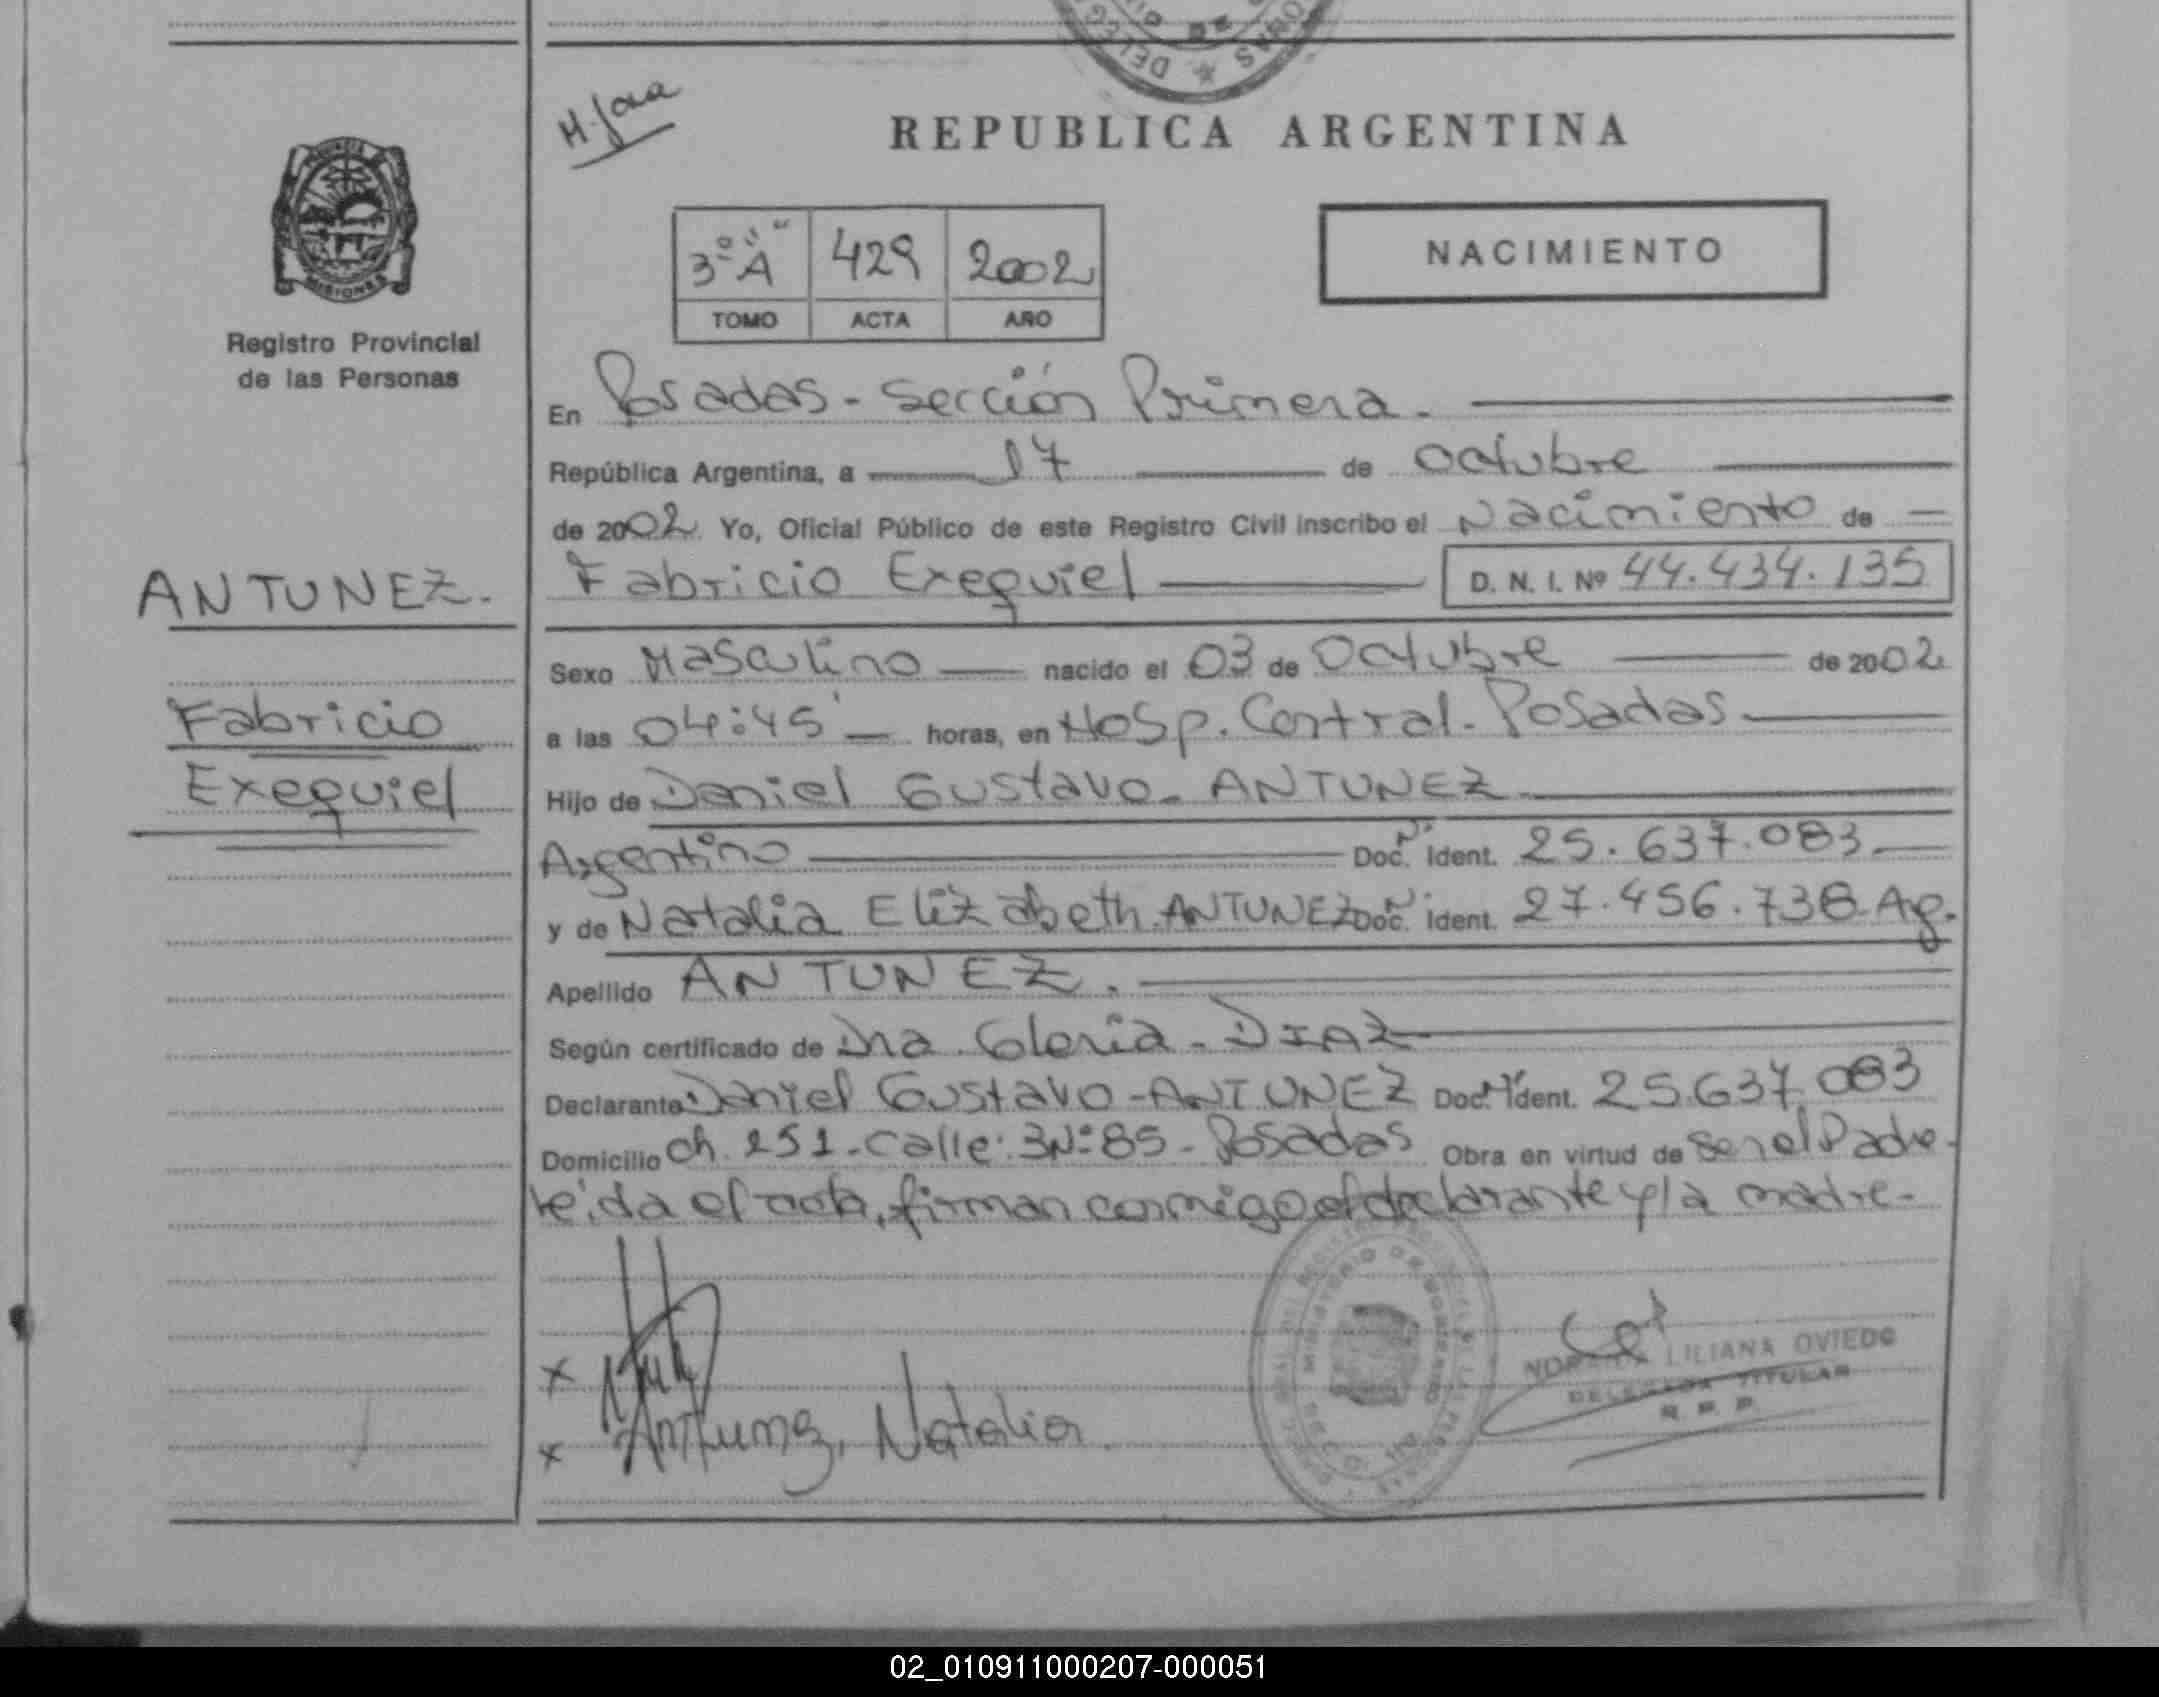 DELEG
OBRAS
DE
H. Jara
REPUBLICA ARGENTINA
PROVINCIA DE
MISIONES
Registro Provincial
de las Personas
3º "A" 429 2002
TOMO ACTA AÑO
NACIMIENTO
En Posadas - Sección Primera.
República Argentina, a 17 de Octubre
de 2002. Yo, Oficial Público de este Registro Civil inscribo el Nacimiento de
ANTUNEZ.
Fabricio
Exequiel
Fabricio Exequiel D. N. I. Nº 44.434.135
Sexo Masculino nacido el 03 de Octubre de 2002
a las 04:45' horas, en Hosp. Central - Posadas
Hijo de Daniel Gustavo - ANTUNEZ
Argentino Doc. Nº Ident. 25.637.083
y de Natalia Elizabeth ANTUNEZ Doc. Nº Ident. 27.456.738 - Ag.
Apellido ANTUNEZ.
Según certificado de Dra. Gloria - DIAZ
Declarante Daniel Gustavo - ANTUNEZ Doc. Nº Ident. 25.637.083
Domicilio Ch. 251 - Calle: 3 Nº 85 - Posadas Obra en virtud de ser el Padre -
leída el acta, firman conmigo el declarante y la madre -
x
x Antunez, Natalia.
MINISTERIO DE GOBIERNO
LILIANA OVIEDO
DELEGADA TITULAR
R. P. P.
02_010911000207-000051